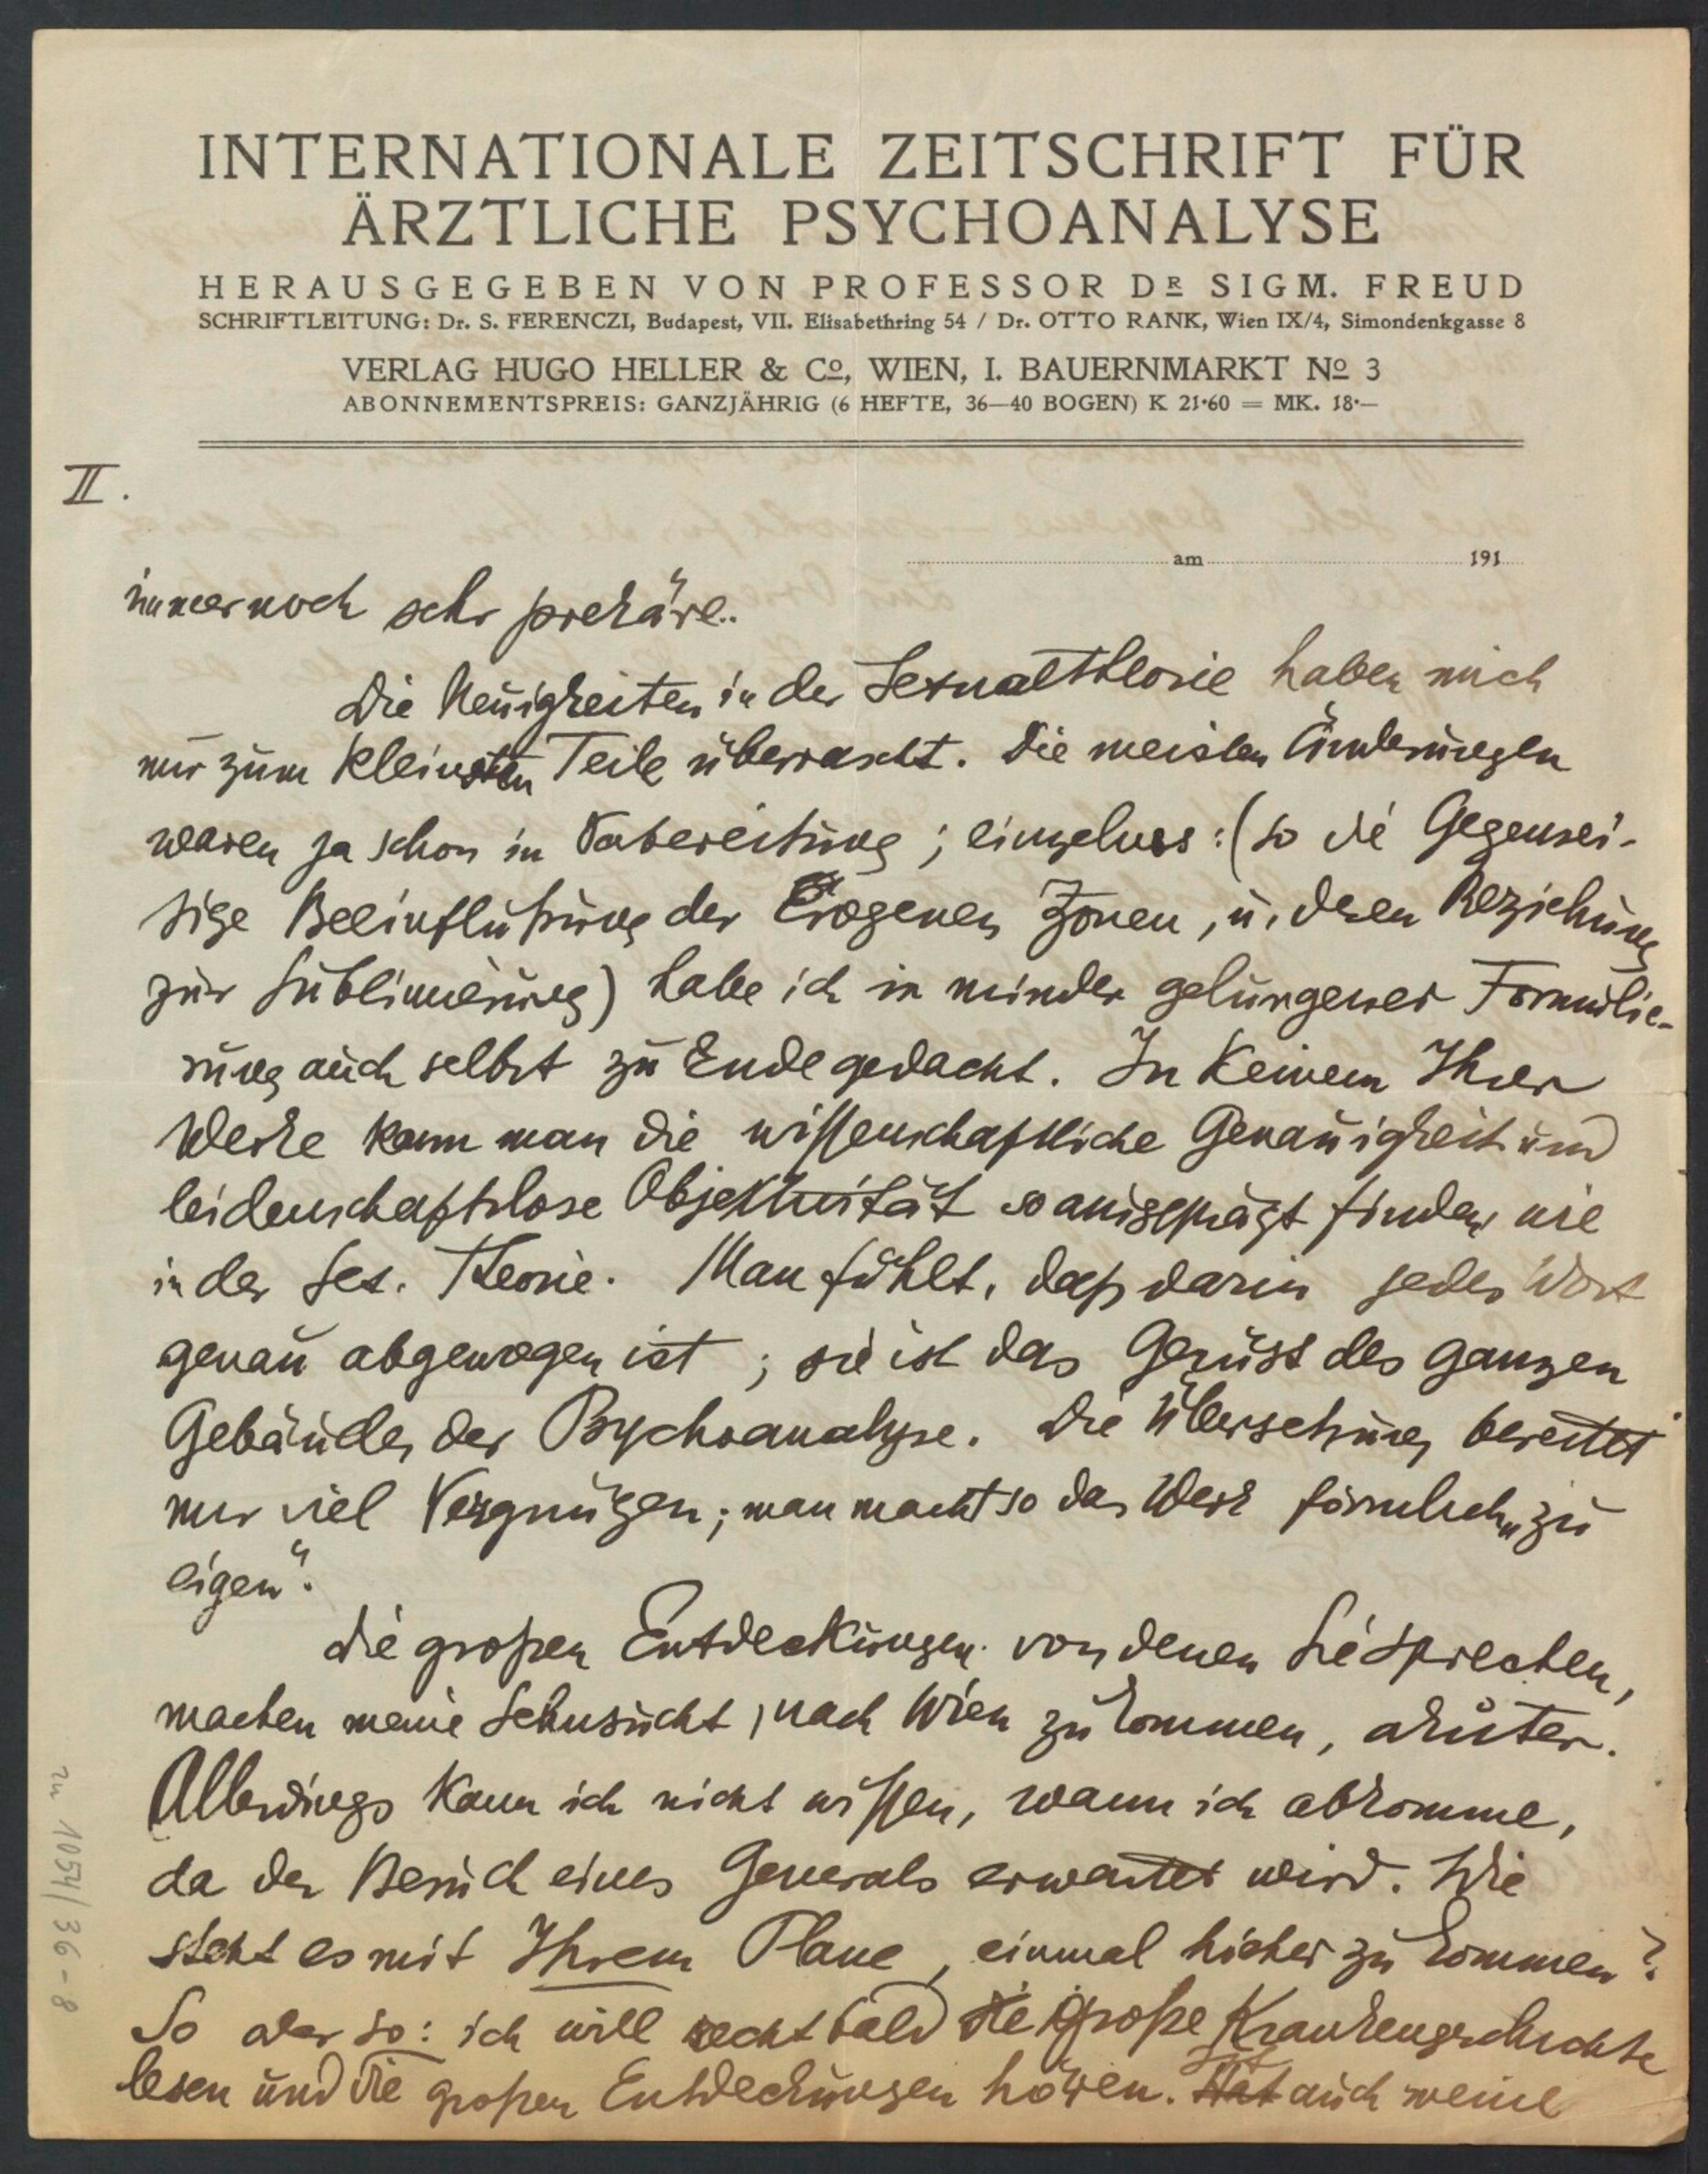 INTERNATIONALE ZEITSCHRIFT FÜR
ÄRZTLICHE PSYCHOANALYSE
HERAUSGEGEBEN VON PROFESSOR DR SIGM. FREUD
SCHRIFTLEITUNG: Dr. S. FERENCZI, Budapest, VII. Elisabethring 54 / Dr. OTTO RANK, Wien IX/4, Simondenkgasse 8
VERLAG HUGO HELLER & Co, WIEN, I. BAUERNMARKT No 3
ABONNEMENTSPREIS: GANZJÄHRIG (6 HEFTE, 36—40 BOGEN) K 21·60 = MK. 18·—
II.
am 191
immer noch sehr prekäre.
Die Neuigkeiten in der Sexualtheorie haben mich
nur zum kleinsten Teile überrascht. Die meisten Änderungen
waren ja schon in Vorbereitung; einzelnes: (so die Gegensei-
tige Beeinflußung der Erogenen Zonen, u. deren Beziehung
zur Sublimierung) habe ich in minder gelungener Formulie-
rung auch selbst zu Ende gedacht. In Keinem Ihrer
Werke kann man die wissenschaftliche Genauigkeit und
leidenschaftslose Objektivität so ausgeprägt finden, wie
in der Sex. Theorie. Man fühlt, daß darin jedes Wort
genau abgewogen ist; sie ist das Gerüst des ganzen
Gebäudes der Psychoanalyse. Die Übersetzung bereitet
mir viel Vergnügen; man macht so das Werk förmlich „zu
eigen“.
Die großen Entdeckungen von denen Sie sprechen,
machen meine Sehnsucht, nach Wien zu kommen, akuter.
Allerdings kann ich nicht wissen, wann ich abkomme,
da der Besuch eines Generals erwartet wird. Wie
steht es mit Ihrem Plane, einmal hieher zu kommen?
So oder so: ich will recht bald die große Krankengeschichte
lesen und die großen Entdeckungen hören. Ist auch meine
zu 1054/36-8